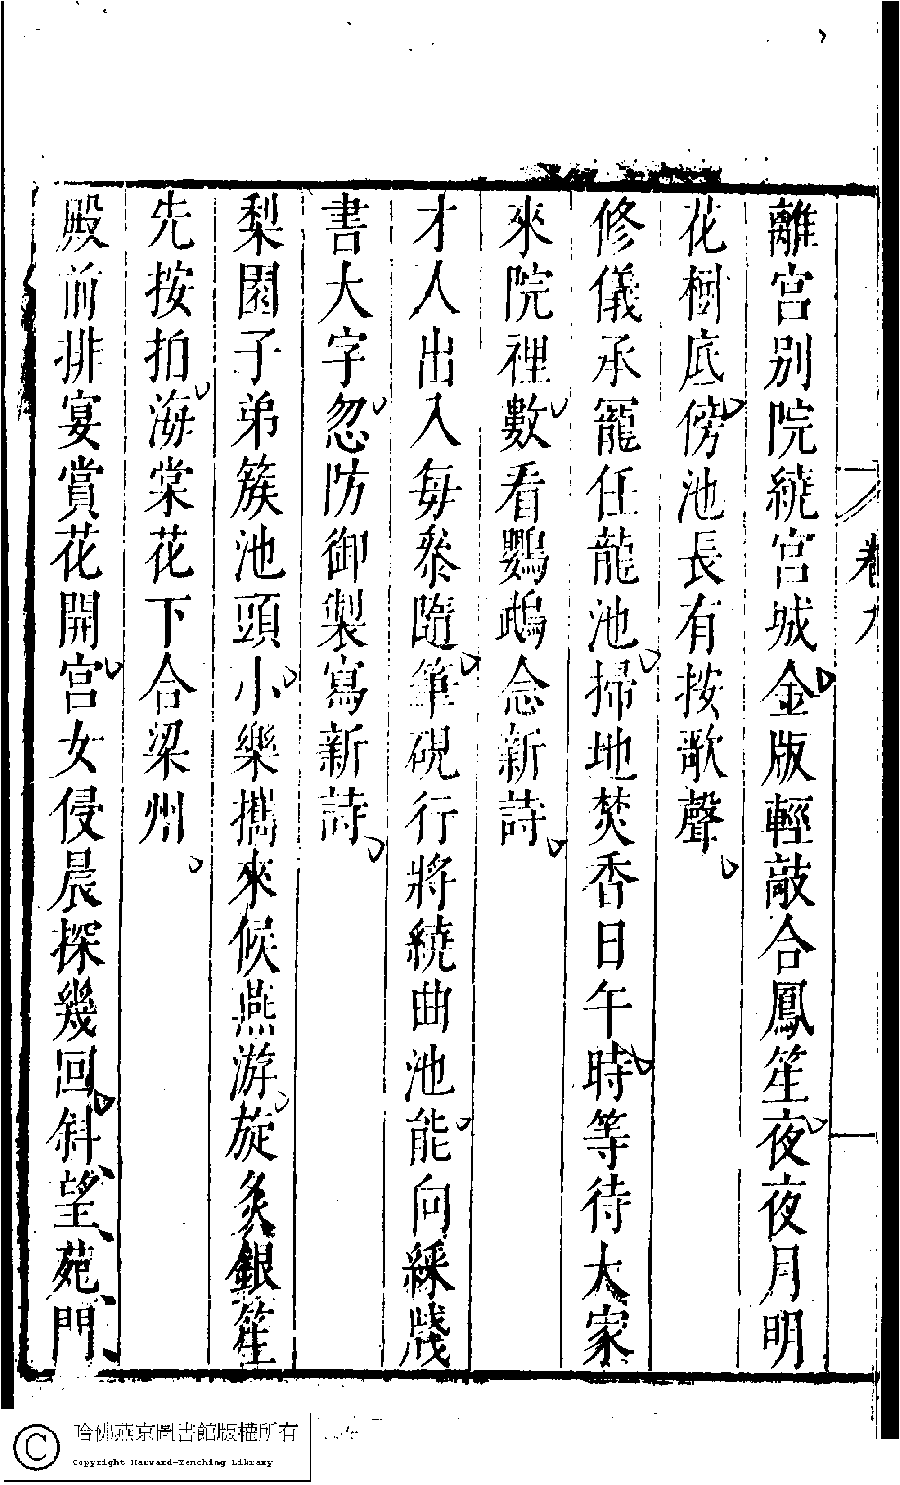 卷九
離宮別院繞宮城金版輕敲合鳳笙夜夜月明
花樹底傍池長有按歌聲
修儀承寵任龍池掃地焚香日午時等待大家
來院裡數看鸚鵡念新詩
才人出入每叅隨筆硯行將繞曲池能向綵牋
書大字忽防御製寫新詩
梨園子弟簇池頭小樂攜來候燕游旋炙銀笙
先按拍海棠花下合梁州
殿前排宴賞花開宮女侵晨探幾回斜望苑門
哈佛燕京圖書館版權所有
Copyright Harvard-Yenching Library